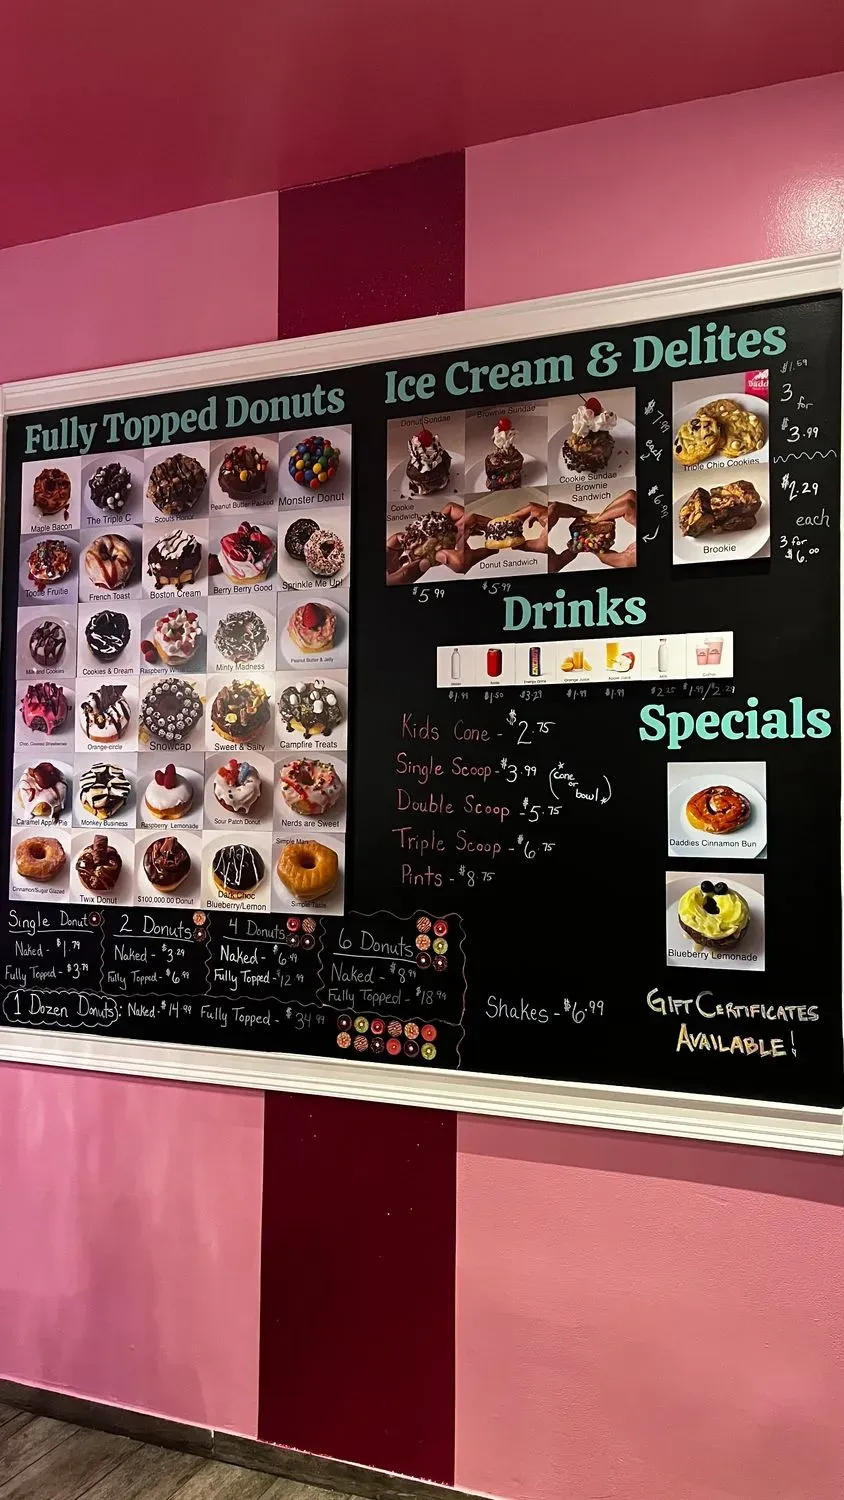 Fully Topped Donuts
Maple Bacon
The Triple C
Scouts Honor
Peanut Butter Packed
Monster Donut
Tootie Fruitie
French Toast
Boston Cream
Berry Berry Good
Sprinkle Me Up!
Milk and Cookies
Cookies & Dream
Raspberry
Minty Madness
Peanut Butter & Jelly
Choc. Covered Strawberries
Orange-circle
Snowcap
Sweet & Salty
Campfire Treats
Caramel Apple Pie
Monkey Business
Raspberry Lemonade
Sour Patch Donut
Nerds are Sweet
Cinnamon/Sugar Glazed
Twix Donut
$100,000.00 Donut
Dark Choc
Blueberry/Lemon
Simple Man
Simple Taste
Single Donut
Naked - $1.79
Fully Topped - $3.79
2 Donuts
Naked - $3.29
Fully Topped - $6.99
4 Donuts
Naked - $6.49
Fully Topped - $12.99
6 Donuts
Naked - $8.99
Fully Topped - $18.99
1 Dozen Donuts: Naked - $14.99 Fully Topped - $34.99
Ice Cream & Delites
Donut Sundae
Brownie Sundae
Cookie Sundae
Cookie
Sandwich
Donut Sandwich
Brownie
Sandwich
$7.99
each
$6.99
$5.99
$5.99
Triple Chip Cookies
$1.59
3 for
$3.99
Brookie
$2.29
each
3 for
$6.00
Drinks
Water
Soda
Energy Drink
Orange Juice
Apple Juice
Milk
Coffee
$1.99 $1.50 $3.29 $1.99 $1.99 $2.25 $1.99/2.29
Kids Cone - $2.75
Single Scoop - $3.99 (*cone or bowl*)
Double Scoop - $5.75
Triple Scoop - $6.75
Pints - $8.75
Shakes - $6.99
Specials
Daddies Cinnamon Bun
Blueberry Lemonade
GIFT CERTIFICATES
AVAILABLE!